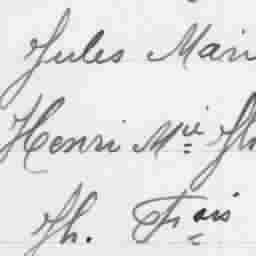 Jules Mari
Henri Mie
Th. Frais